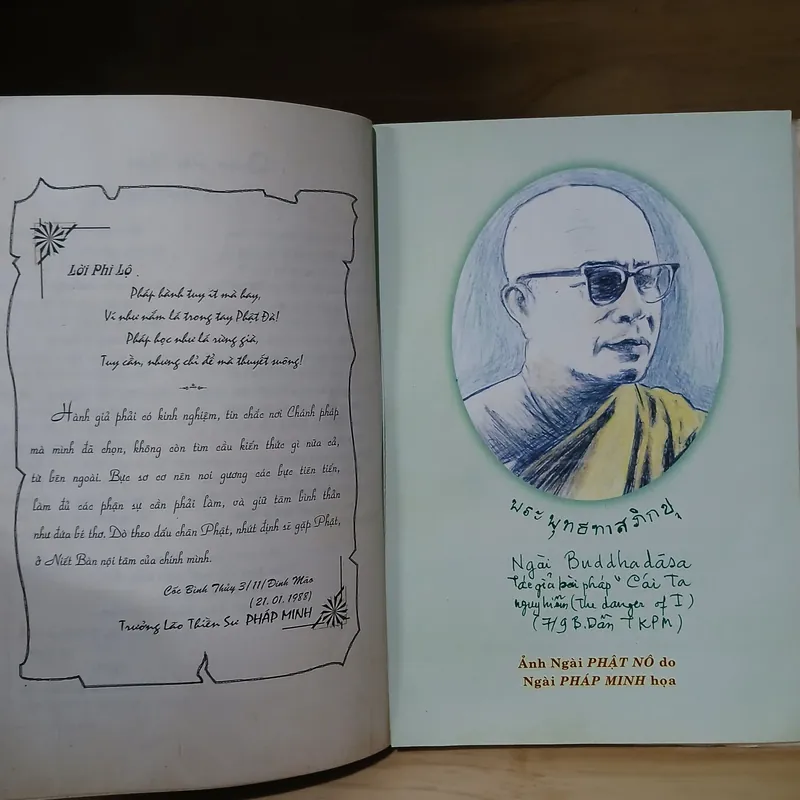 Lời Phi Lộ
Pháp hành tuy ít mà hay,
Ví như nắm lá trong tay Phật Đà!
Pháp học như lá rừng già,
Tuy cần, nhưng chỉ để mà thuyết suông!
Hành giả phải có kinh nghiệm, tin chắc nơi Chánh pháp
mà mình đã chọn, không còn tìm cầu kiến thức gì nữa cả,
từ bên ngoài. Bực sơ cơ nên noi gương các bực tiên tiến,
làm đủ các phận sự cần phải làm, và giữ tâm bình thản
như đứa bé thơ. Dò theo dấu chân Phật, nhứt định sẽ gặp Phật,
ở Niết Bàn nội tâm của chính mình.
Cốc Bình Thủy 3/11/Đinh Mão
(21.01.1988)
Trưởng Lão Thiền Sư PHÁP MINH
พระพุทธทาสภิกขุ
Ngài Buddhadāsa
Tác giả bài pháp "Cái Ta
nguy hiểm (The danger of I)
(7/9 B.Dần TKPM)
Ảnh Ngài PHẬT NÔ do
Ngài PHÁP MINH họa